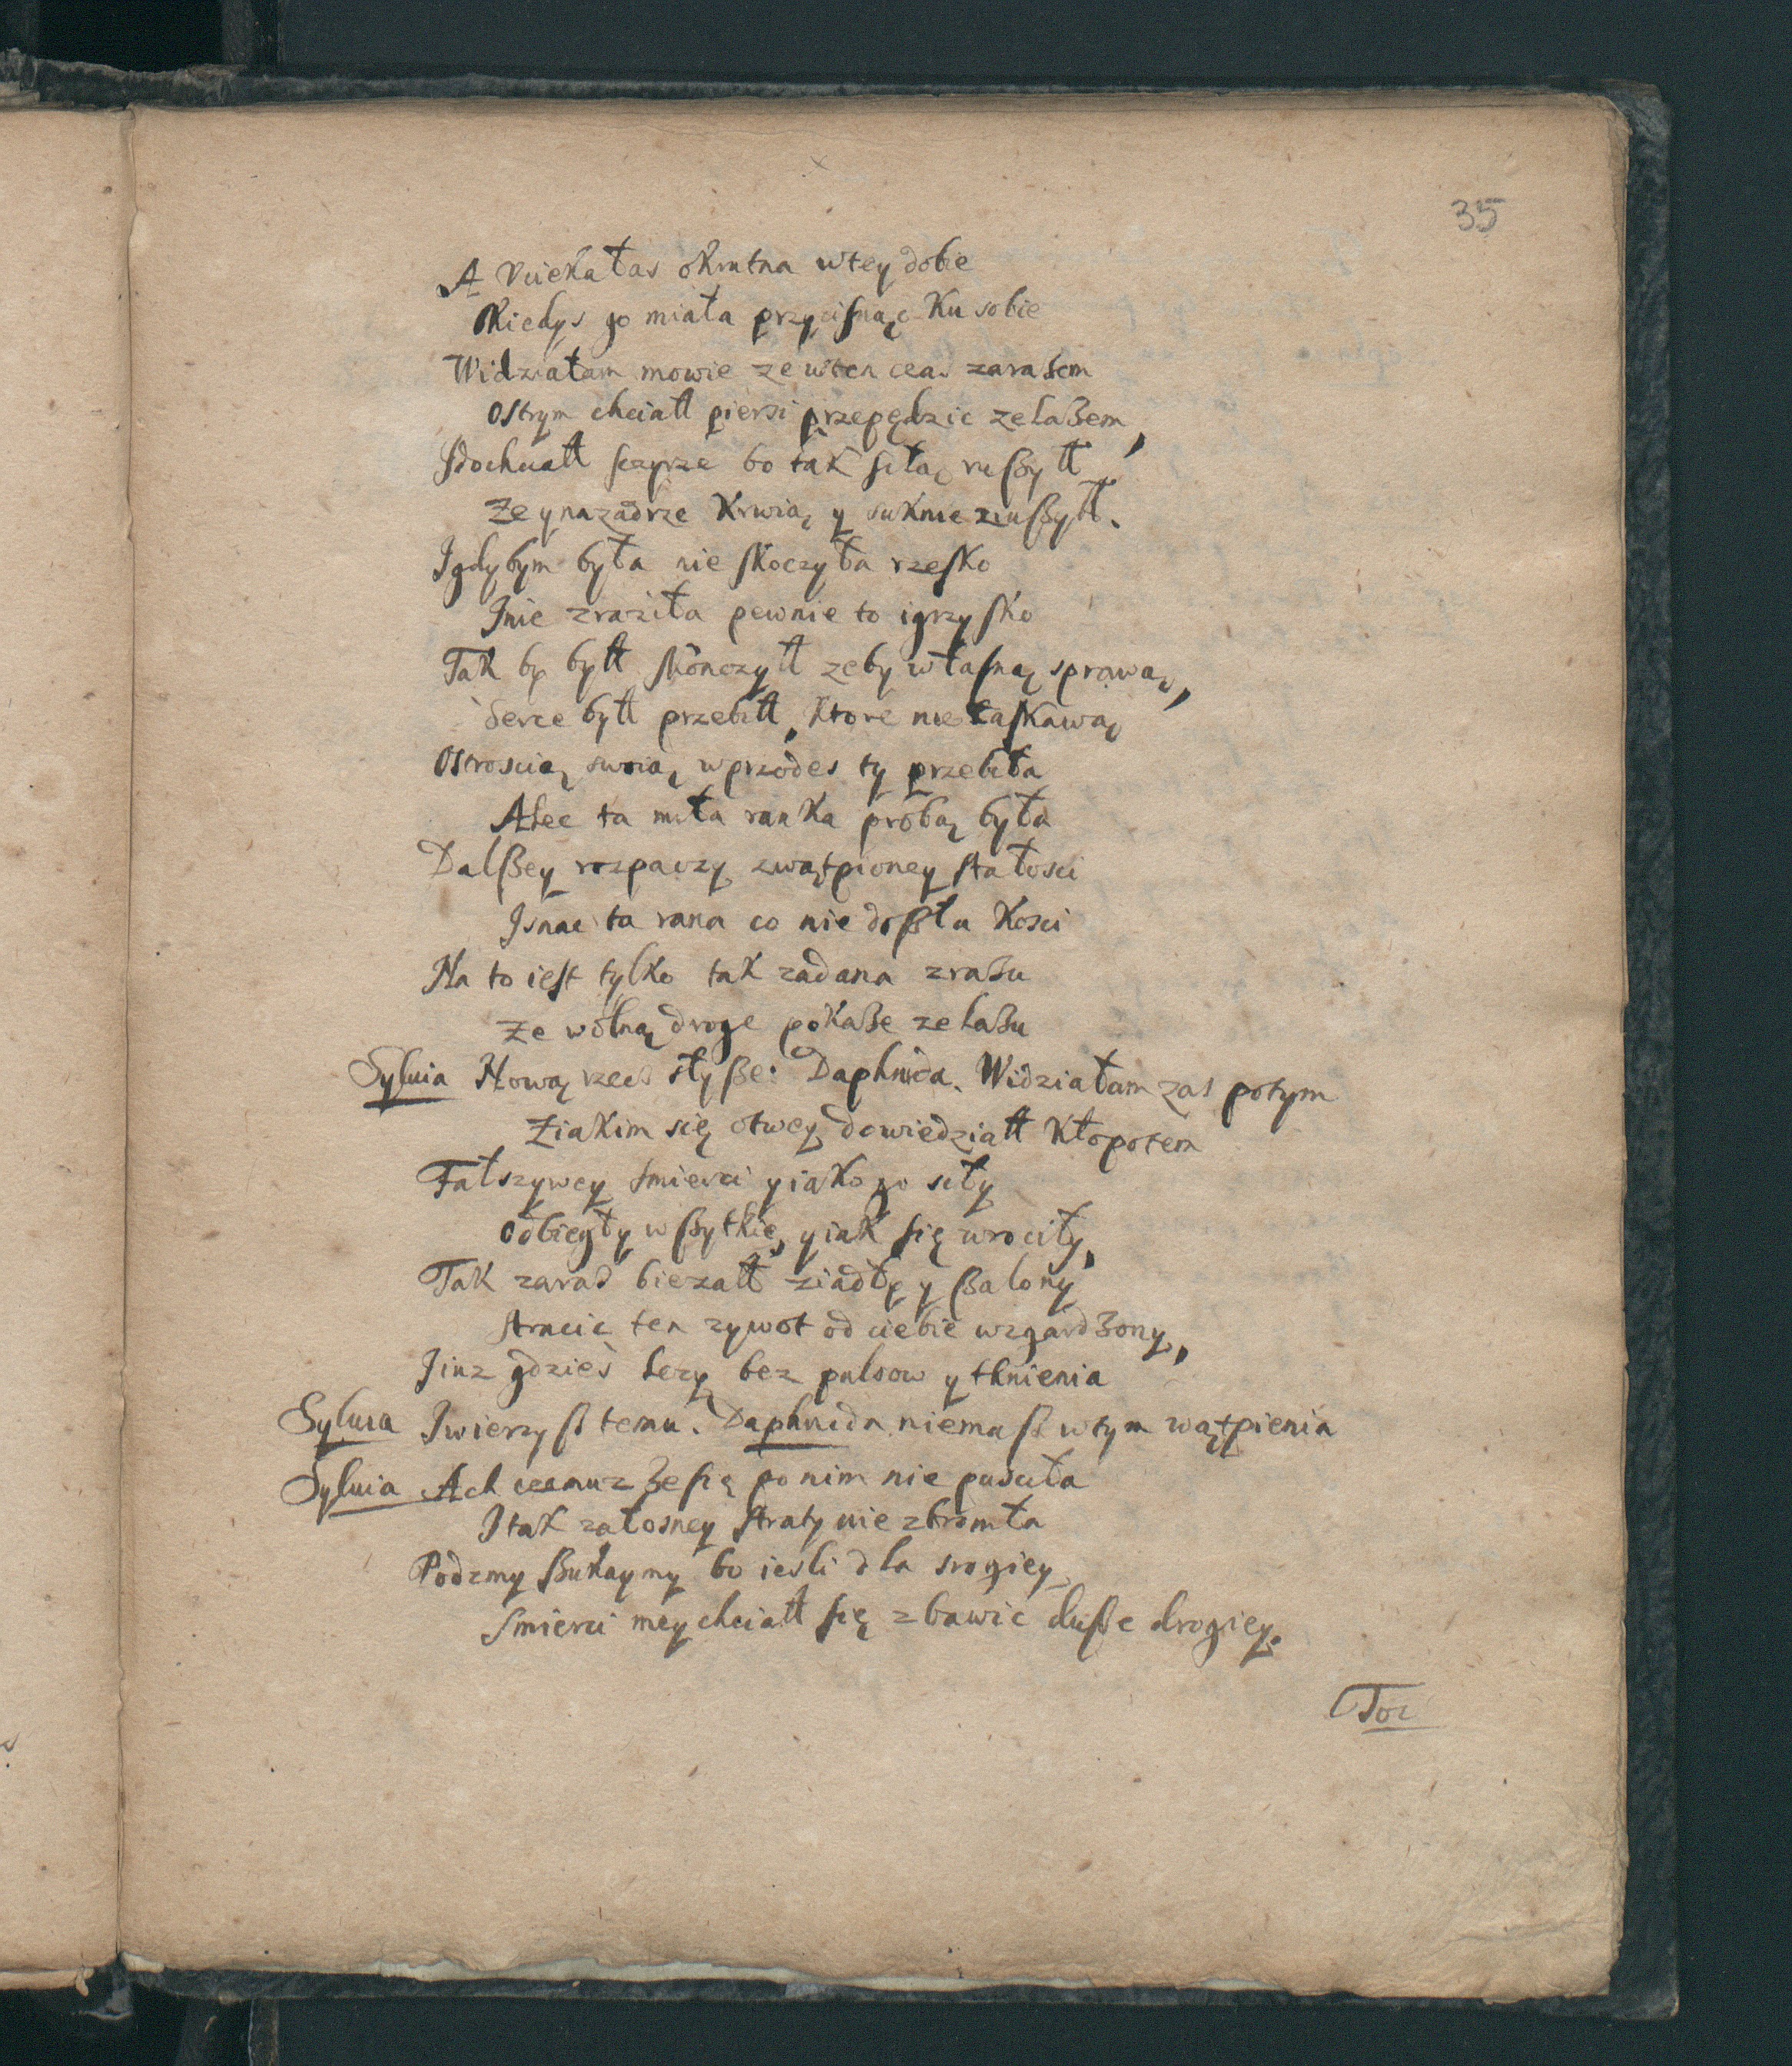 35
A Vciekałas okrutna wtey dobie
Kiedys go miała przycisnąc Ku sobie
Widziałam mowie ze wten czas zarasem
Ostrym chciałł piersi przepędzic zelaßem,
Jdochuałł sczyrze bo tak siłą rußyłł,
Ze y nazadrze Krwią y suknie zrußyłł.
Jgdybym była nie skoczyła rzesko
Jnie zraziła pewnie to igrzysko
Tak by byłł skonczyłł zeby własną sprawą,
Serce byłł przebiłł, Ktore nie łaskawą
Ostroscią swoią wprzodes ty przebiła
Alec ta miła ranka probą była
Dalßey rozpaczy zwątpioney stałosci
Jsnac ta rana co nie doßła Kosci
Na to iest tylko tak zadana zraßu
Ze wolną droge pokaße zelaßu
Sylvia Nową rzecz słyße: Daphnida. Widziałam zas potym
Ziakim się otwey dowiedziałł Kłopotem
Fałszywey smierci y iako go siły
Odbiegły wßytkie, y iak się wrociły,
Tak zaras biezałł ziadły y ßalony
stracic ten zywot od ciebie wzgardzony,
Jiuz gdzies lezy bez pulsow y tknienia
Sylvia Jwierzyß temu. Daphnida niemaß wtym wątpienia
Sylvia Ach czemuz ze się ponim nie pusciła
Jtak załosney straty nie zbroniła
Podzmy ßukaymy bo iesli dla srogiey
Smierci mey chciałł się zbawic duße drogiey.
Toc